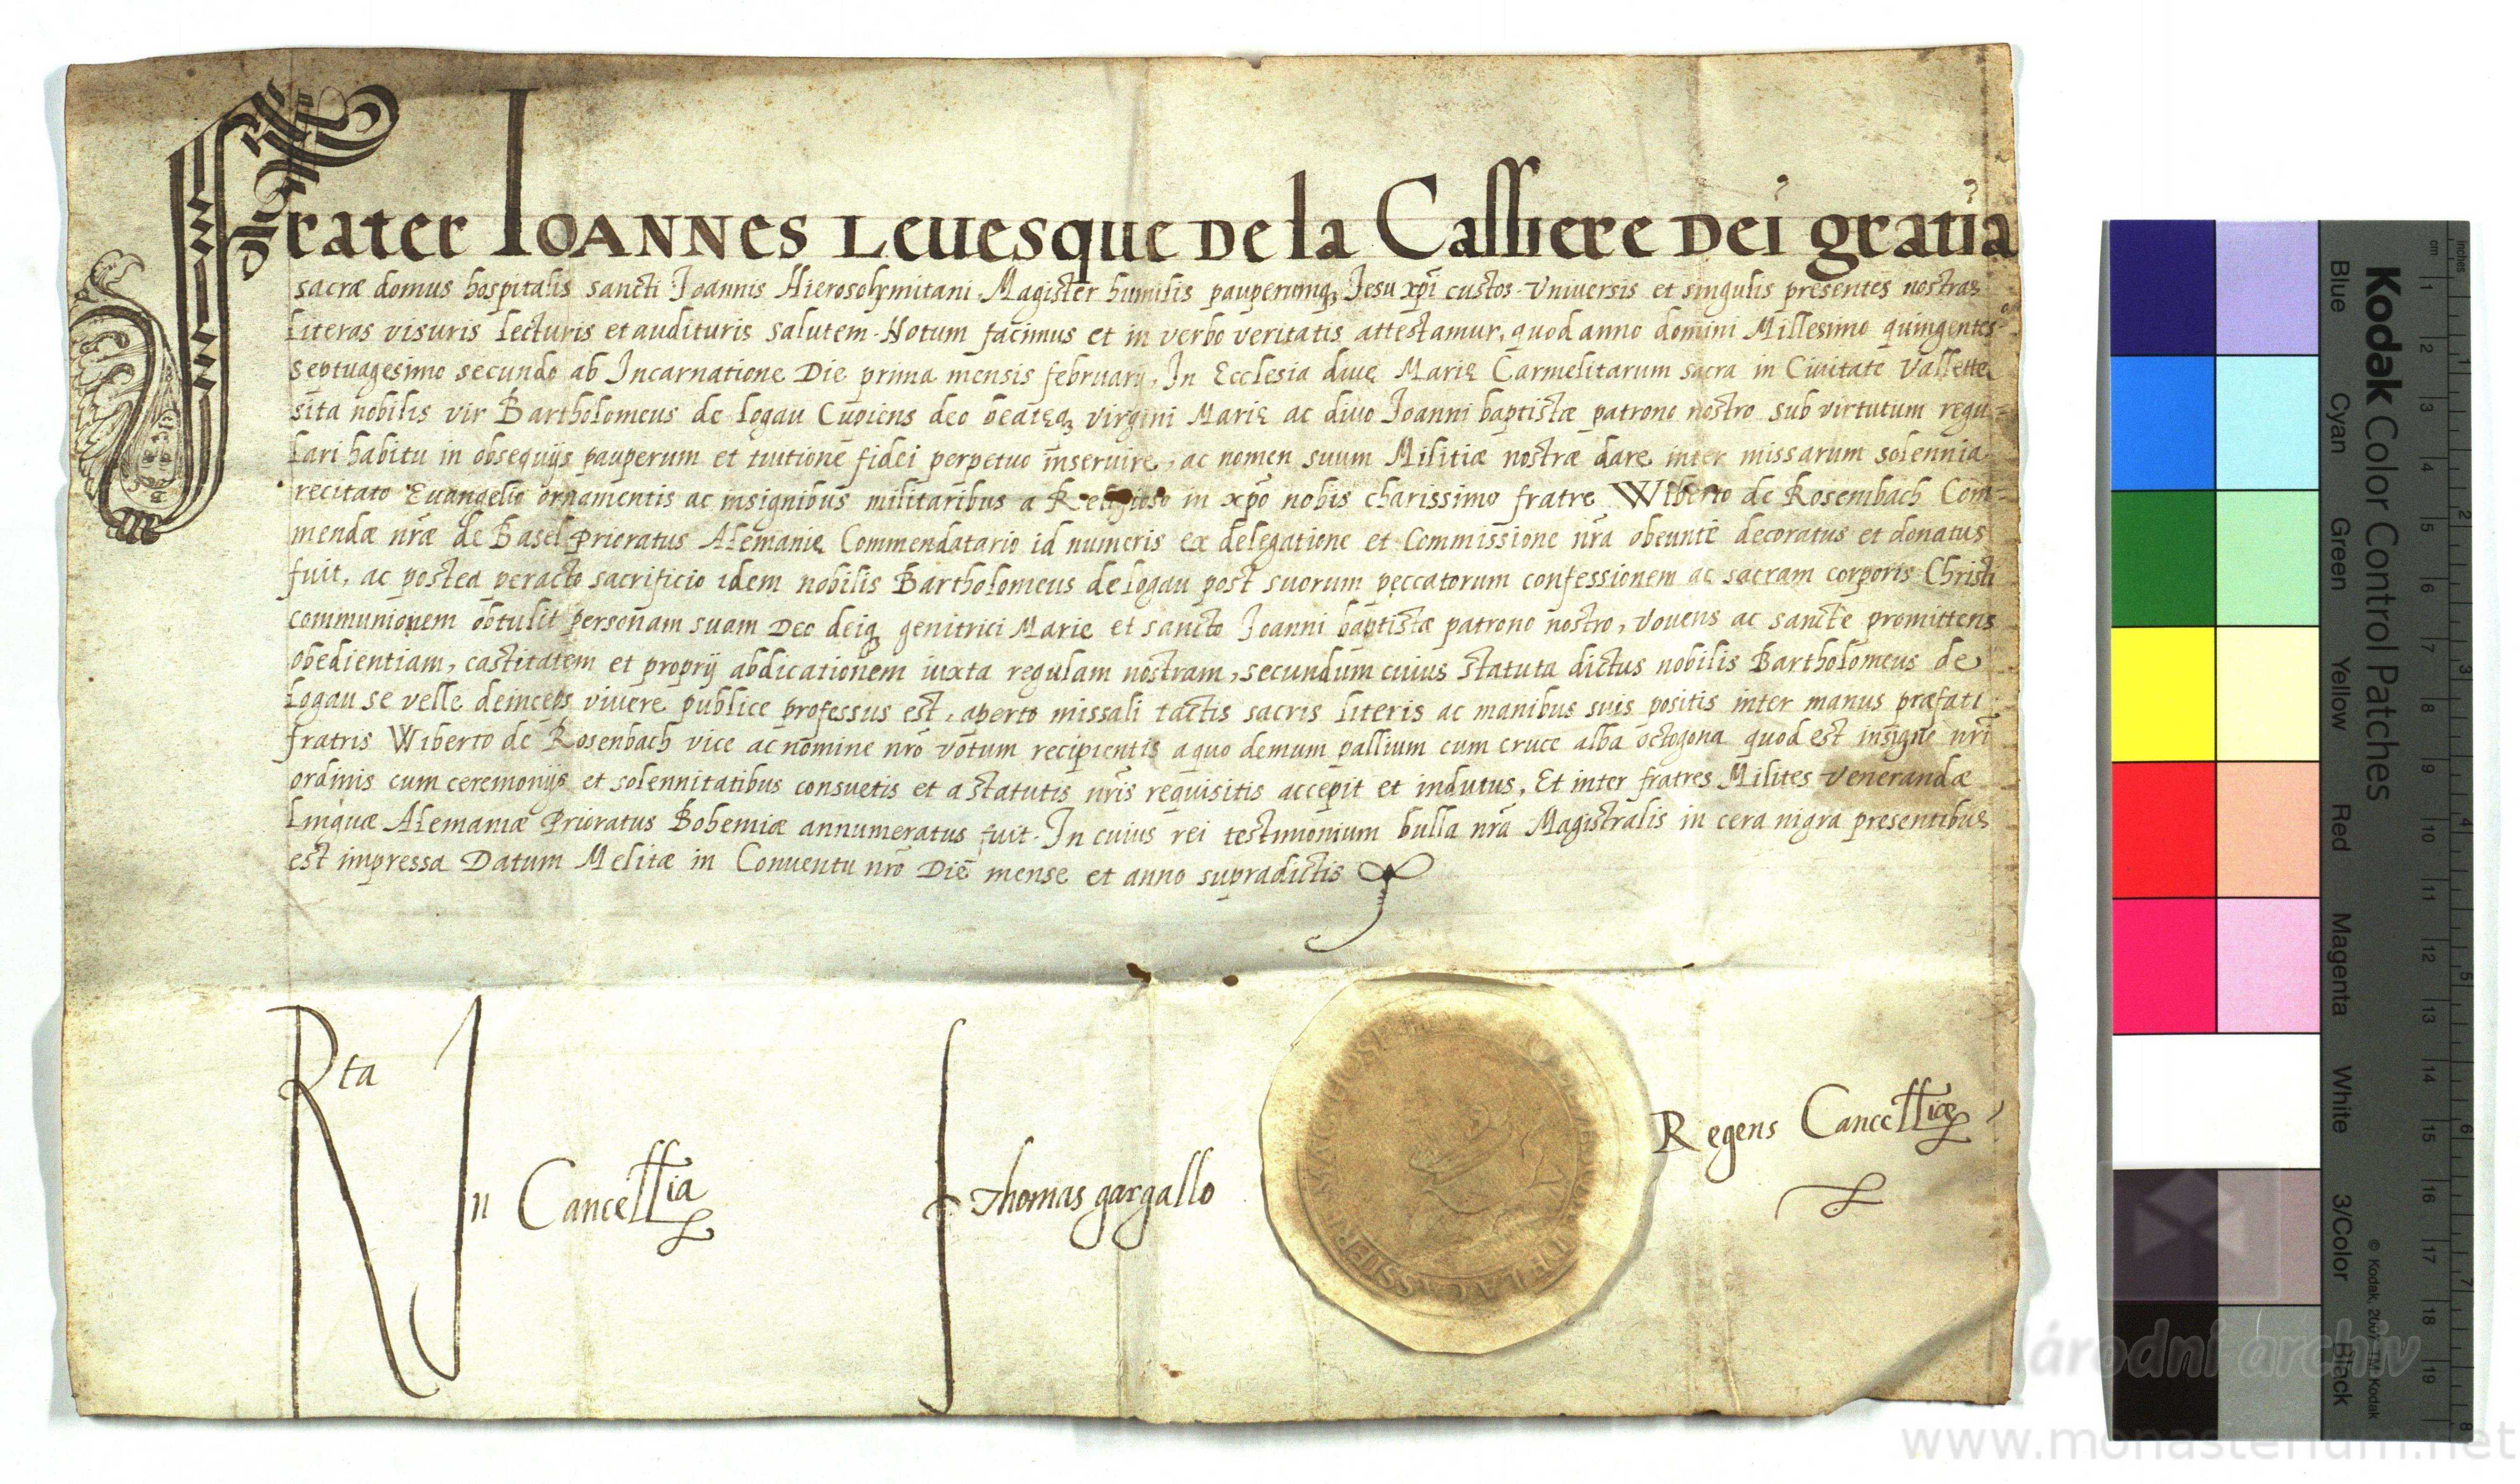 Frater Ioannes Leuesque de la Cassiere Dei gratia
sacræ domus hospitalis sancti Joannis Hierosolymitani Magister humilis pauperumq3 Jesu xp̄i custos. Vniuersis et singulis presentes nostras
literas visuris lecturis et audituris salutem. Notum facimus et in verbo veritatis attestamur, quod anno domini Millesimo quingentesᵒ
septuagesimo secundo ab Incarnatione Die prima mensis february, In Ecclesia diuę Marię Carmelitarum sacra in Ciuitate Vallette
sita nobilis vir Bartholomeus de logau Cupiens deo beatęq3 virgini Marię ac diuo Joanni baptistæ patrono nostro sub virtutum regu-
lari habitu in obsequijs pauperum et tuitione fidei perpetuo inseruire, ac nomen suum Militiæ nostræ dare inter missarum solennia
recitato Euangelio ornamentis ac insignibus militaribus a Religioso in xp̄o nobis charissimo fratre Wiberto de Rosembach Com-
mendæ nr̄æ de Basel Prioratus Alemanię Commendatario id muneris ex delegatione et Commissione nr̄a obeunte decoratus et donatus
fuit, ac postea peracto sacrificio idem nobilis Bartholomeus de logau post suorum peccatorum confessionem ac sacram corporis Christi
communionem obtulit personam suam Deo deiq3 genitrici Marie et sancto Joanni baptistæ patrono nostro, vouens ac sancte promittens
obedientiam, castitatem et proprij abdicationem iuxta regulam nostram, secundum cuius statuta dictus nobilis Bartholomeus de
logau se velle deinceps viuere publice professus est, aperto missali tactis sacris literis ac manibus suis positis inter manus præfati
fratris Wiberto de Rosenbach vice ac nomine nr̄o votum recipientis a quo demum pallium cum cruce alba octogona quod est insigne nr̄i
ordinis cum ceremonijs et solennitatibus consuetis et a statutis nr̄is requisitis accepit et indutus, Et inter fratres Milites Venerandæ
linguæ Alemaniæ Prioratus Bohemiæ annumeratus fuit. In cuius rei testimonium bulla nr̄a Magistralis in cera nigra presentibus
est impressa Datum Melitæ in Conuentu nr̄o Die mense et anno supradictis
Rta In Cancellia
Thomas gargallo
Regens Cancelliæ
Kodak Color Control Patches
Blue Cyan Green Yellow Red Magenta White 3/Color Black
© Kodak, 2007 TM: Kodak
inches
cm
1 2 3 4 5 6 7 8 9 10 11 12 13 14 15 16 17 18 19
1 2 3 4 5 6 7 8
Národní archiv
www.monasterium.net